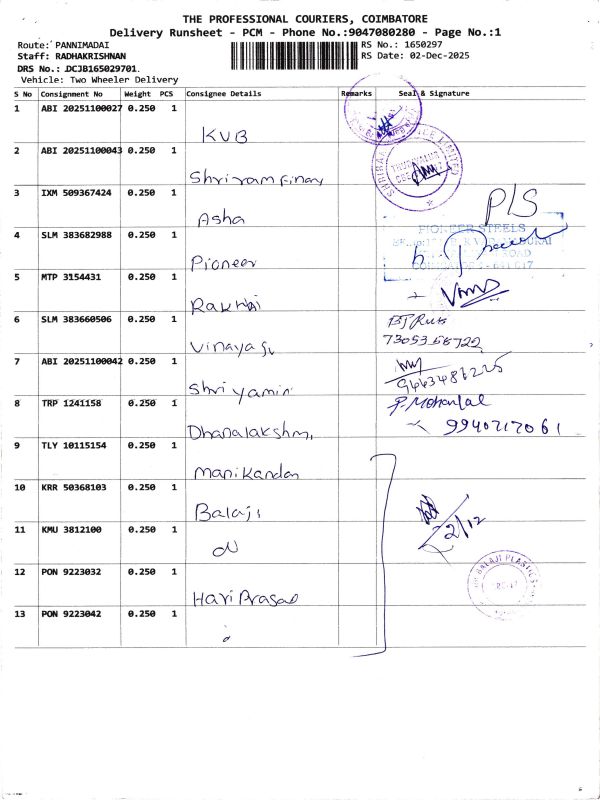 THE PROFESSIONAL COURIERS, COIMBATORE
Delivery Runsheet - PCM - Phone No.:9047080280 - Page No.:1
Route: PANNIMADAI
RS No.: 1650297
Staff: RADHAKRISHNAN
RS Date: 02-Dec-2025
DRS No.: DCJB165029701
Vehicle: Two Wheeler Delivery
S No Consignment No Weight PCS Consignee Details Remarks Seal & Signature
1 ABI 20251100027 0.250 1
KVB
2 ABI 20251100043 0.250 1
Shriram Finan
3 IXM 509367424 0.250 1
Asha
P/S
4 SLM 383682988 0.250 1
PIONEER STEELS
Pioneer
5 MTP 3154431 0.250 1
Rakhi
6 SLM 383660506 0.250 1
Vinayaga
7 ABI 20251100042 0.250 1
Shriyamin
9443486225
8 TRP 1241158 0.250 1
P. Mohanlal
Dhanalakshmi
9940717061
9 TLY 10115154 0.250 1
Manikandan
10 KRR 50368103 0.250 1
Balaji
11 KMU 3812100 0.250 1
2/12
12 PON 9223032 0.250 1
BALAJI PLASTICS
Hari Prasad
13 PON 9223042 0.250 1